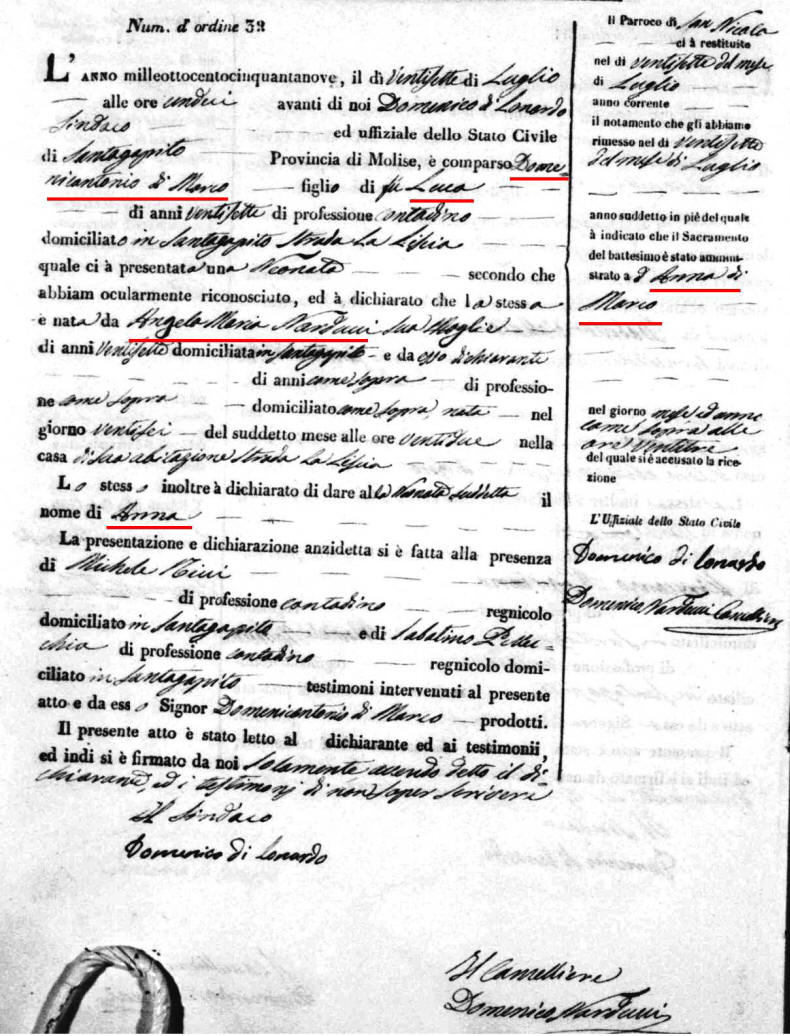 Num. d'ordine 32
L'ANNO milleottocentocinquantanove, il dì ventisette di Luglio
alle ore undici avanti di noi Domenico di Lonardo
Sindaco ed uffiziale dello Stato Civile
di Santagapito Provincia di Molise, è comparso Dome-
nicantonio di Marco figlio di fu Luca
di anni ventisette di professione contadino
domiciliato in Santagapito Strada La Liscia
quale ci à presentata una Neonata secondo che
abbiam ocularmente riconosciuto, ed à dichiarato che la stessa
è nata da Angela Maria Narducci sua Moglie
di anni ventisette domiciliata in Santagapito e da esso dichiarante
di anni come sopra di professio-
ne come sopra domiciliato come sopra, nata nel
giorno ventisei del suddetto mese alle ore ventidue nella
casa di sua abitazione Strada La Liscia
Lo stesso inoltre à dichiarato di dare alla Neonata suddetta il
nome di Anna
La presentazione e dichiarazione anzidetta si è fatta alla presenza
di Michele
di professione contadino regnicolo
domiciliato in Santagapito e di Sabatino
di professione contadino regnicolo domi-
ciliato in Santagapito testimoni intervenuti al presente
atto e da esso Signor Domenicantonio di Marco prodotti.
Il presente atto è stato letto al dichiarante ed ai testimonii,
ed indi si è firmato da noi solamente avendo detto il di-
chiarante, ed i testimonj di non saper scrivere
Il Sindaco
Domenico di Lonardo
Il Cancelliere
Domenico Narducci
Il Parroco di San Nicola
ci à restituito
nel dì ventisette del mese
di Luglio
anno corrente
il notamento che gli abbiamo
rimesso nel dì ventisette
del mese di Luglio
anno suddetto in piè del quale
à indicato che il Sacramento
del battesimo è stato ammini-
strato a d Anna di
Marco
nel giorno mese ed anno
come sopra alle
ore ventitre
del quale si è accusato la rice-
zione
L'Uffiziale dello Stato Civile
Domenico di Lonardo
Domenico Narducci Cancelliere